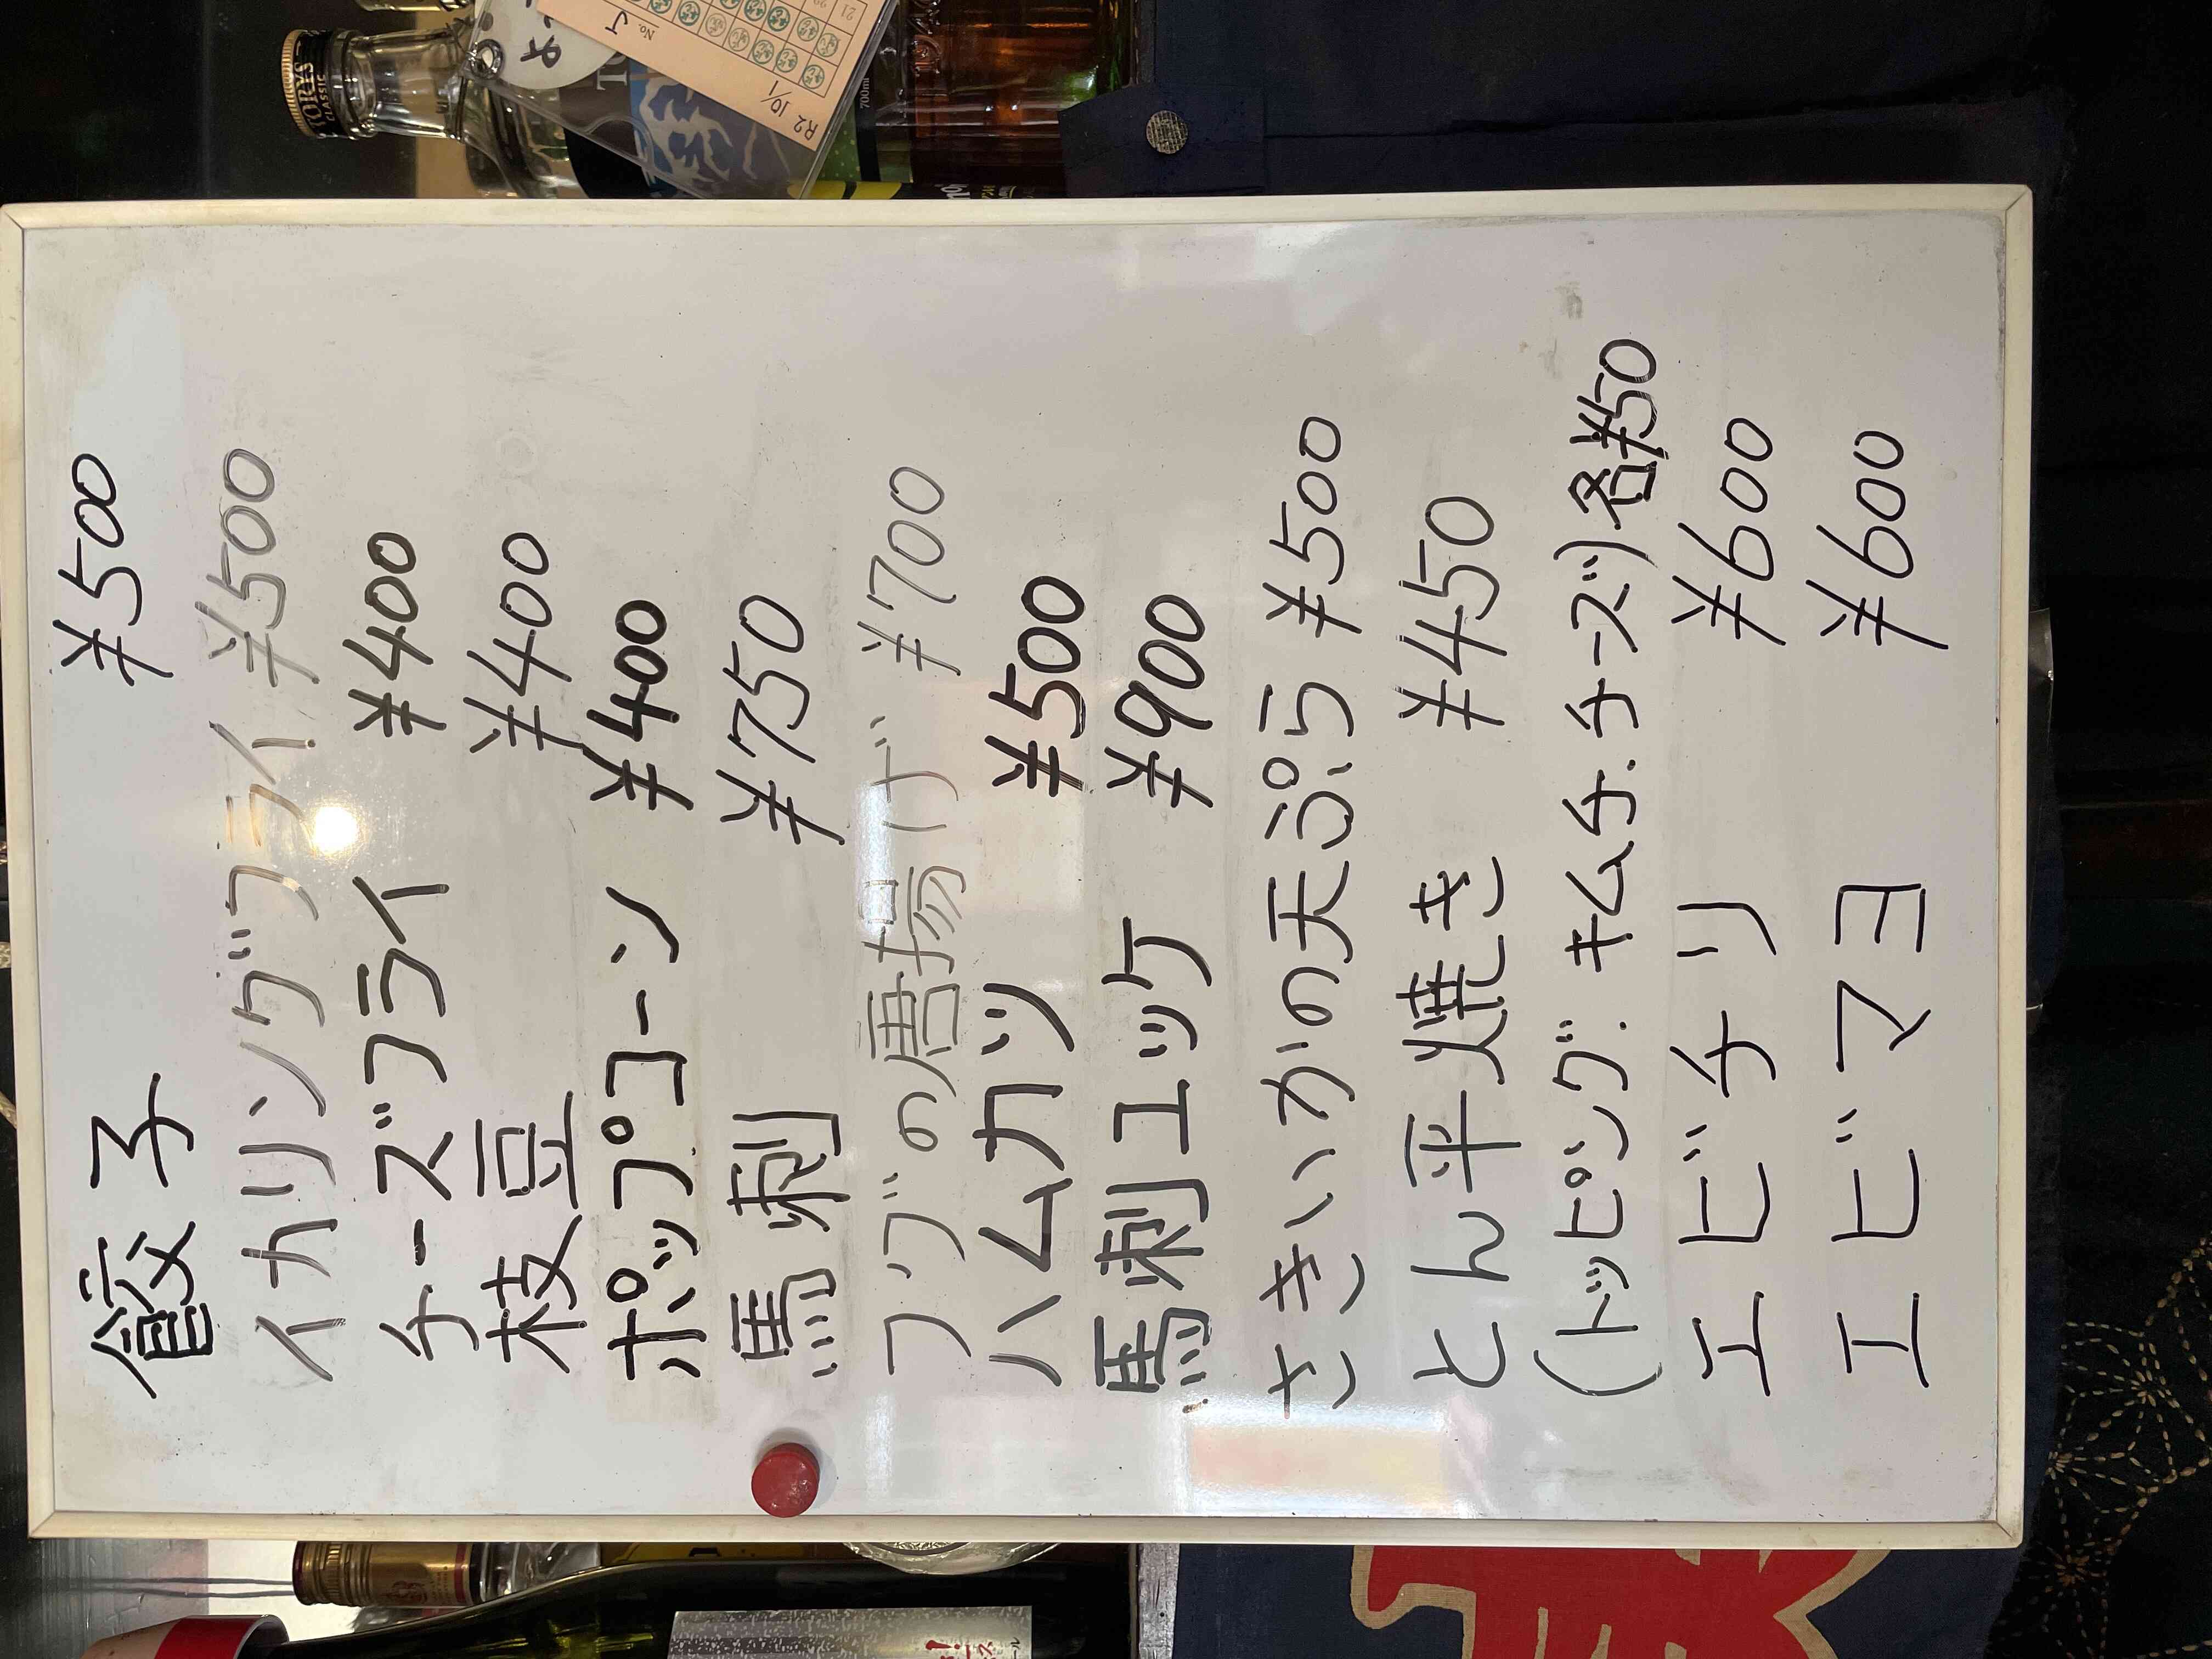 餃子 ¥500
イカリングフライ ¥500
チーズフライ ¥400
枝豆 ¥400
ポップコーン ¥400
馬刺 ¥750
フグの唐揚げ ¥700
ハムカツ ¥500
馬刺ユッケ ¥900
さきいかの天ぷら ¥500
とん平焼き ¥450
(トッピング:キムチ.チーズ)各¥50
エビチリ ¥600
エビマヨ ¥600
TORYS
CLASSIC
No. J
R2 10/1
700ml